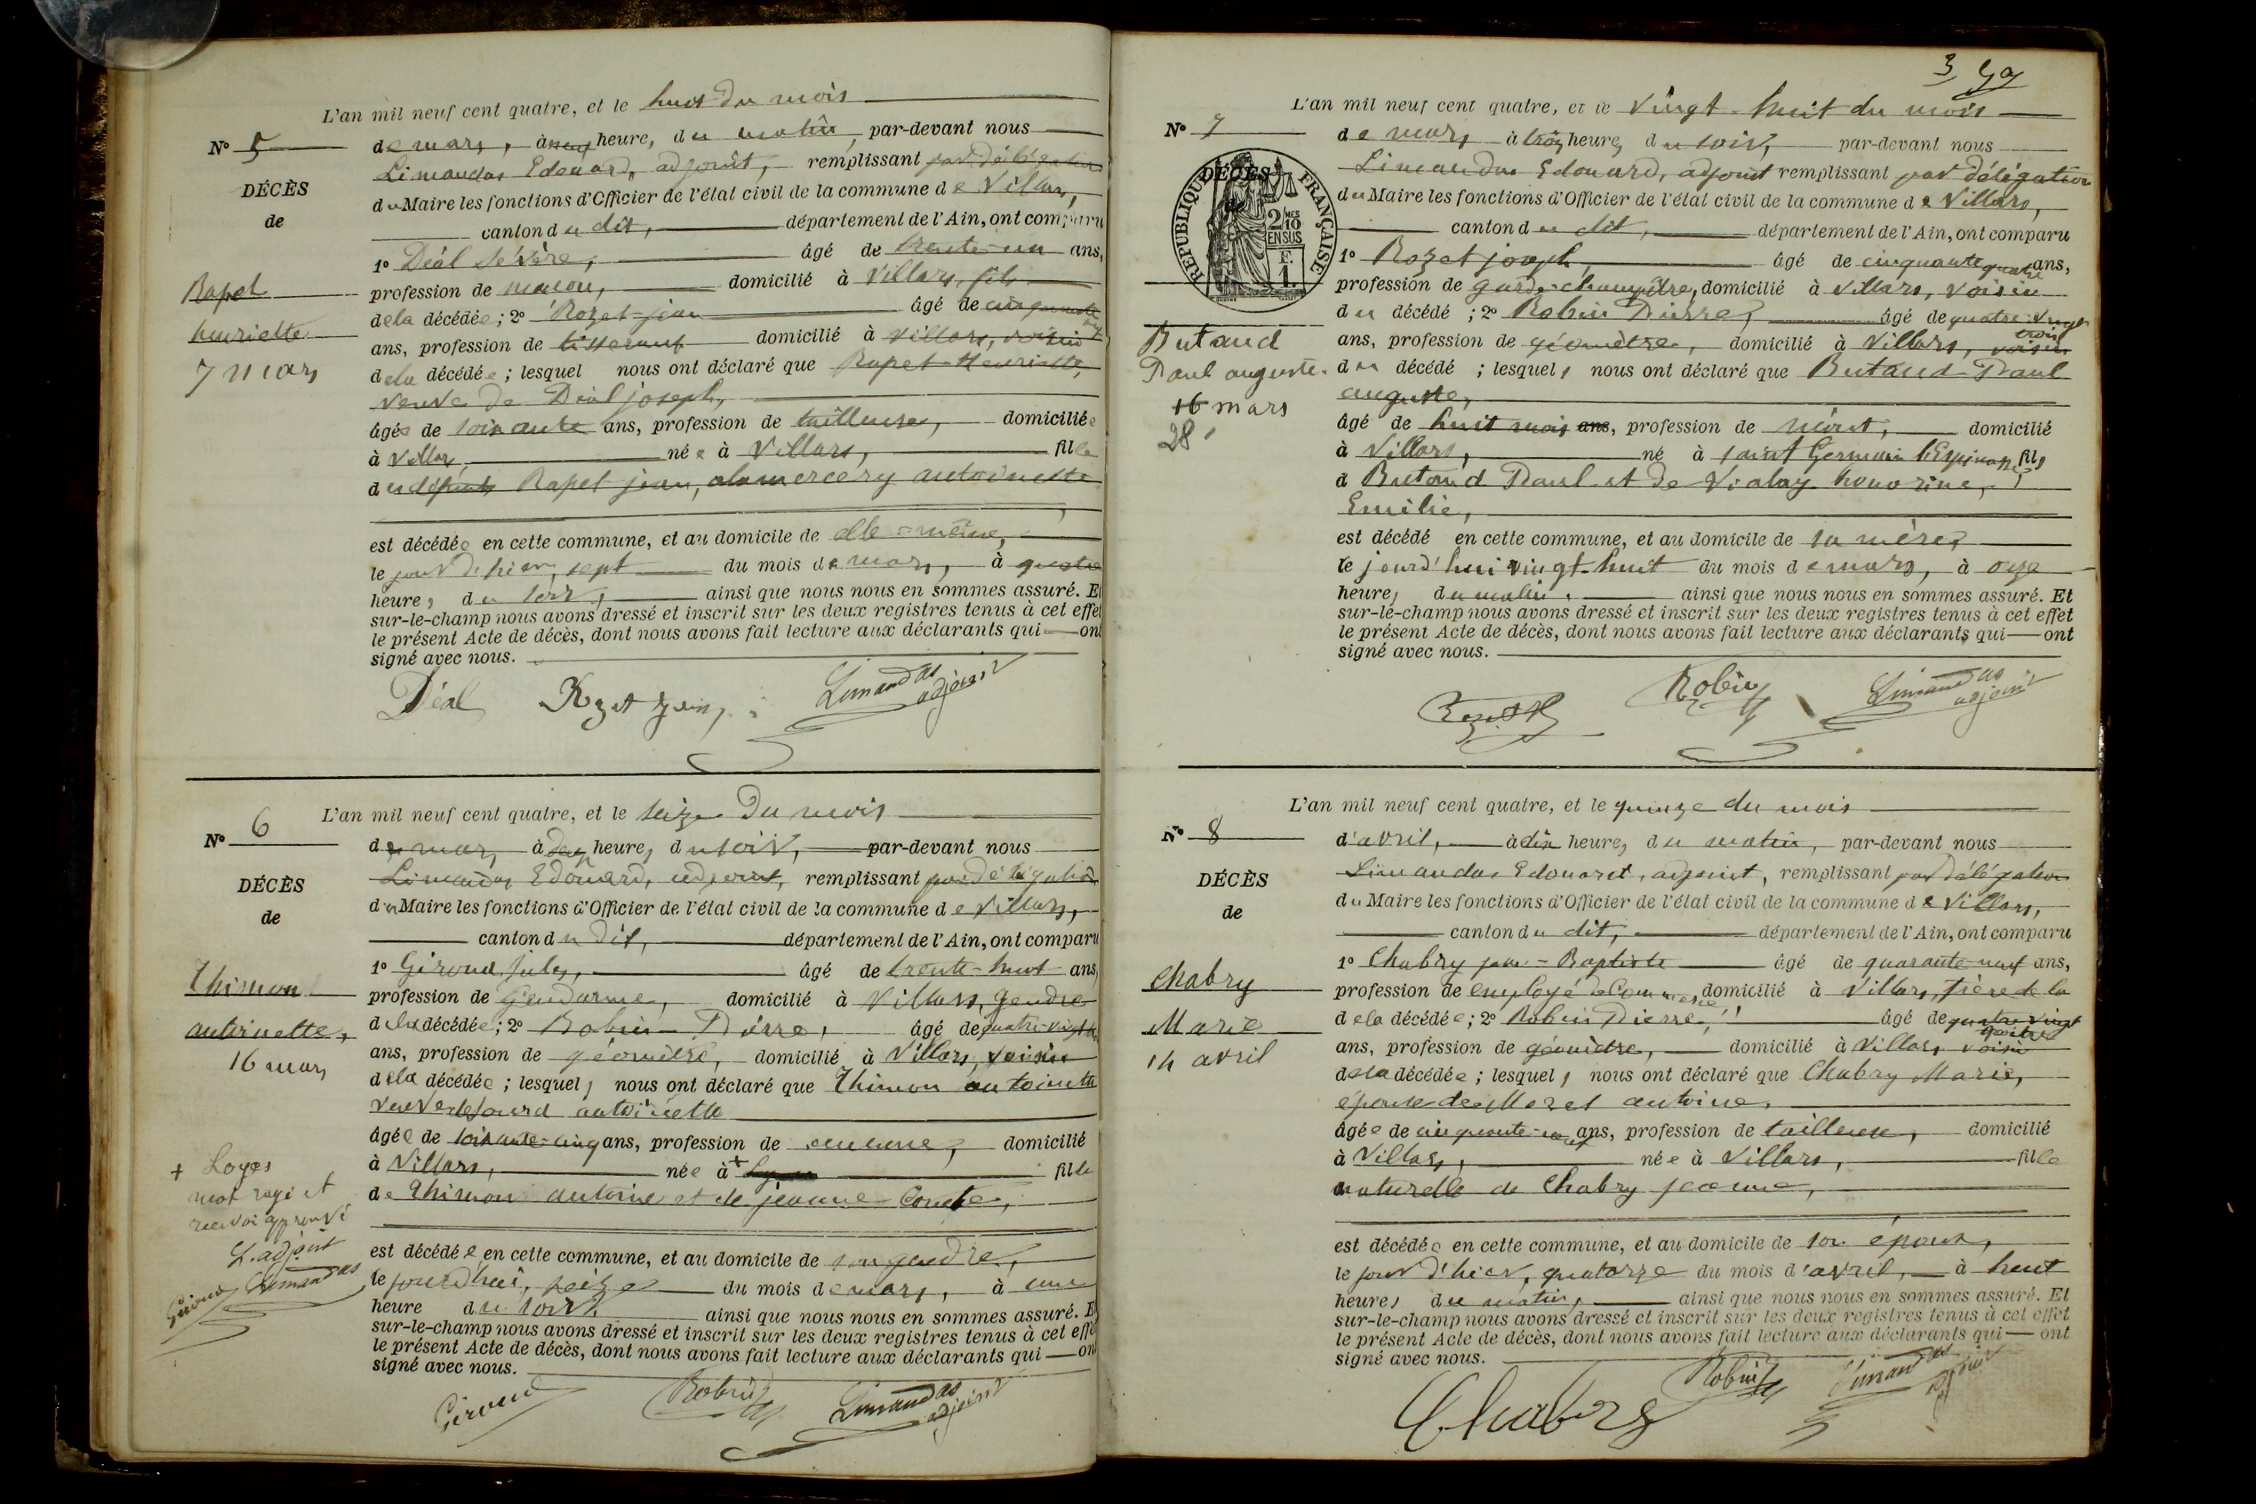 L'an mil neuf cent quatre, et le huit du mois
N° 5
de mars, à neuf heure, du matin, par-devant nous
Limandas Edouard, adjoint, remplissant par délégation
DÉCÈS
du Maire les fonctions d'Officier de l'état civil de la commune de Villars,
de
canton du dit, département de l'Ain, ont comparu
1° Déal Sévère, âgé de trente-un ans,
Rapet
profession de maçon, domicilié à Villars, fils
henriette
de la décédée; 2° Rozet jean âgé de cinquante
ans, profession de tisserand domicilié à Villars, voisin
7 mars
de la décédée; lesquel nous ont déclaré que Rapet Henriette,
veuve de Déal joseph,
âgée de soixante ans, profession de tailleuse, domiciliée
à Villars, née à Villars, fille
des défunts Rapet jean, et mercery antoinette
est décédée en cette commune, et au domicile de elle-même,
le jour d'hier, sept du mois de mars, à quatre
heures du soir, ainsi que nous nous en sommes assuré. Et
sur-le-champ nous avons dressé et inscrit sur les deux registres tenus à cet effet
le présent Acte de décès, dont nous avons fait lecture aux déclarants qui ont
signé avec nous.
Déal Rozet jean Limandas adjoint
L'an mil neuf cent quatre, et le seize du mois
N° 6
de mars, à deux heures du soir, par-devant nous
Limandas Edouard, adjoint, remplissant par délégation
DÉCÈS
du Maire les fonctions d'Officier de l'état civil de la commune de Villars,
de
canton du dit, département de l'Ain, ont comparu
1° Giroud jules, âgé de trente-huit ans,
Thimon
profession de Gendarme, domicilié à Villars, gendre
antoinette,
de la décédée; 2° Robin Pierre, âgé de quatre-vingt
16 mars
ans, profession de géomètre, domicilié à Villars, voisin
de la décédée; lesquels nous ont déclaré que Thimon antoinette
veuve de antoinette
âgée de soixante-cinq ans, profession de aucune, domicilié
à Villars, née à + fille
+ Loyes
mot rayé et
renvoi approuvé
L'adjoint
Giroud Limandas
de Thimon antoine et de jeanne Comte,
est décédée en cette commune, et au domicile de son gendre,
le jourd'hui, seize du mois de mars, à une
heure du soir, ainsi que nous nous en sommes assuré. Et
sur-le-champ nous avons dressé et inscrit sur les deux registres tenus à cet effet
le présent Acte de décès, dont nous avons fait lecture aux déclarants qui ont
signé avec nous.
Giroud Robin Limandas adjoint
3
L'an mil neuf cent quatre, et le vingt-huit du mois
N° 7
de mars à trois heures du soir, par-devant nous
Limandas Edouard, adjoint remplissant par délégation
DÉCÈS
RÉPUBLIQUE FRANÇAISE
2 MES 10 EN SUS
F. 1.
du Maire les fonctions d'Officier de l'état civil de la commune de Villars,
canton du dit, département de l'Ain, ont comparu
1° Rozet joseph, âgé de cinquante quatre ans,
profession de garde-champêtre, domicilié à Villars, voisin
du décédé; 2° Robin Pierre, âgé de quatre-vingt
trois
Butaud
Paul auguste.
16 mars
28
ans, profession de géomètre, domicilié à Villars, voisin
du décédé; lesquels nous ont déclaré que Butaud Paul
auguste,
âgé de huit mois ans, profession de néant, domicilié
à Villars, né à saint Germain l'Espinasse, fils
d Butaud Paul et de Vialay honorine,
Emilie,
est décédé en cette commune, et au domicile de sa mère,
le jourd'hui vingt-huit du mois de mars, à onze
heures du matin, ainsi que nous nous en sommes assuré. Et
sur-le-champ nous avons dressé et inscrit sur les deux registres tenus à cet effet
le présent Acte de décès, dont nous avons fait lecture aux déclarants qui ont
signé avec nous.
Rozet Robin Limandas adjoint
L'an mil neuf cent quatre, et le quinze du mois
N° 8
d'avril, à dix heures du matin, par-devant nous
Limandas Edouard, adjoint, remplissant par délégation
DÉCÈS
du Maire les fonctions d'Officier de l'état civil de la commune de Villars,
de
canton du dit, département de l'Ain, ont comparu
1° Chabry jean-Baptiste âgé de quarante-neuf ans,
Chabry
profession de employé de commerce domicilié à Villars, frère de la
Marie
de la décédée; 2° Robin Pierre, âgé de quatre vingt
quatre
14 avril
ans, profession de géomètre, domicilié à Villars, voisin
de la décédée; lesquels nous ont déclaré que Chabry Marie,
épouse de Morel antoine,
âgée de ans, profession de tailleuse, domicilié
à Villars, née à Villars, fille
naturelle de Chabry jeanne,
est décédée en cette commune, et au domicile de son époux,
le jour d'hier, quatorze du mois d'avril, à huit
heures du matin, ainsi que nous nous en sommes assuré. Et
sur-le-champ nous avons dressé et inscrit sur les deux registres tenus à cet effet
le présent Acte de décès, dont nous avons fait lecture aux déclarants qui ont
signé avec nous.
Chabry Robin Limandas adjoint